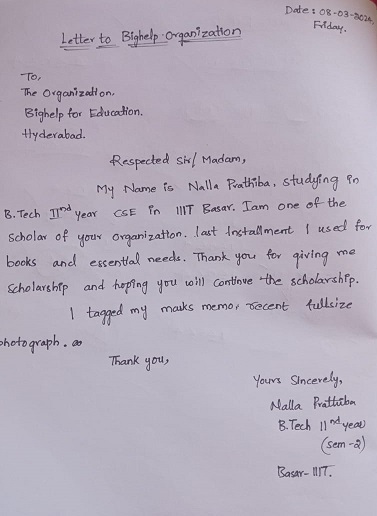 Date : 08-03-2024.
Friday.
Letter to Bighelp Organization
To,
The Organization,
Bighelp for Education.
Hyderabad.
Respected Sir/ Madam,
My Name is Nalla Prathiba, studying in
B.Tech IInd year CSE in IIIT Basar. I am one of the
Scholar of your organization. last Installment I used for
books and essential needs. Thank you for giving me
Scholarship and hoping you will continue the scholarship.
I tagged my marks memo, recent fullsize
photograph.
Thank you,
Yours Sincerely,
Nalla Prathiba
B.Tech IInd year
(sem-2)
Basar-IIIT.